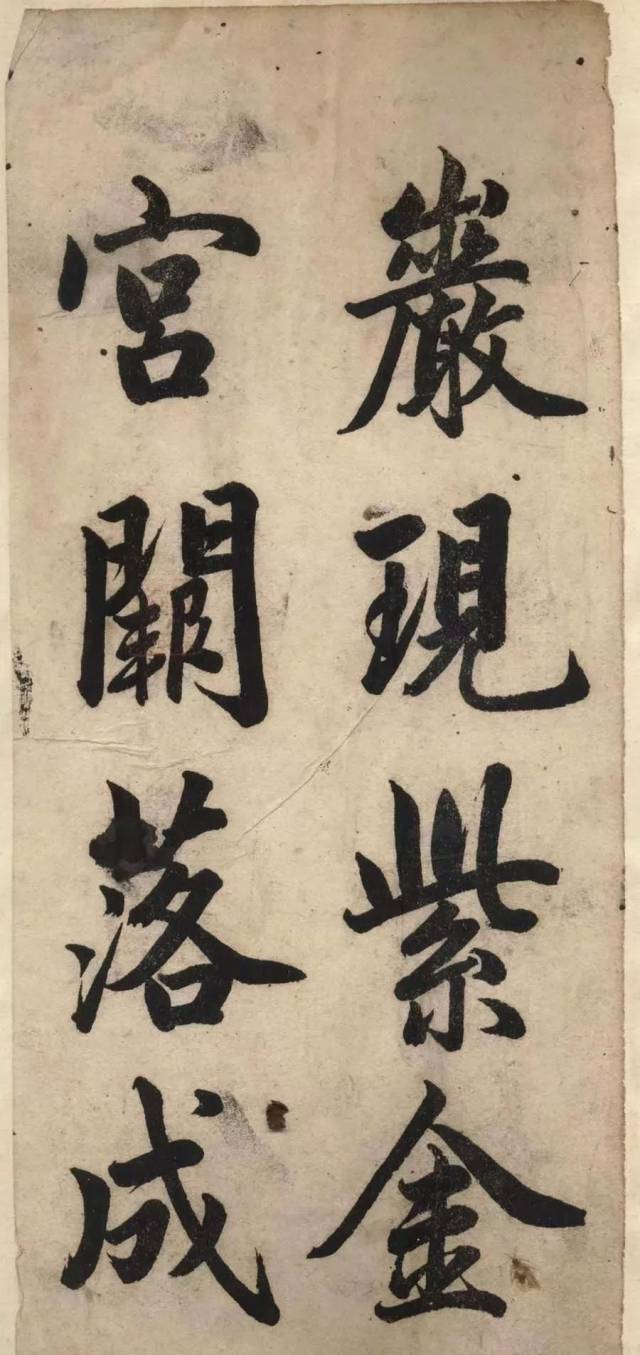 巖現紫金
宮闕落成